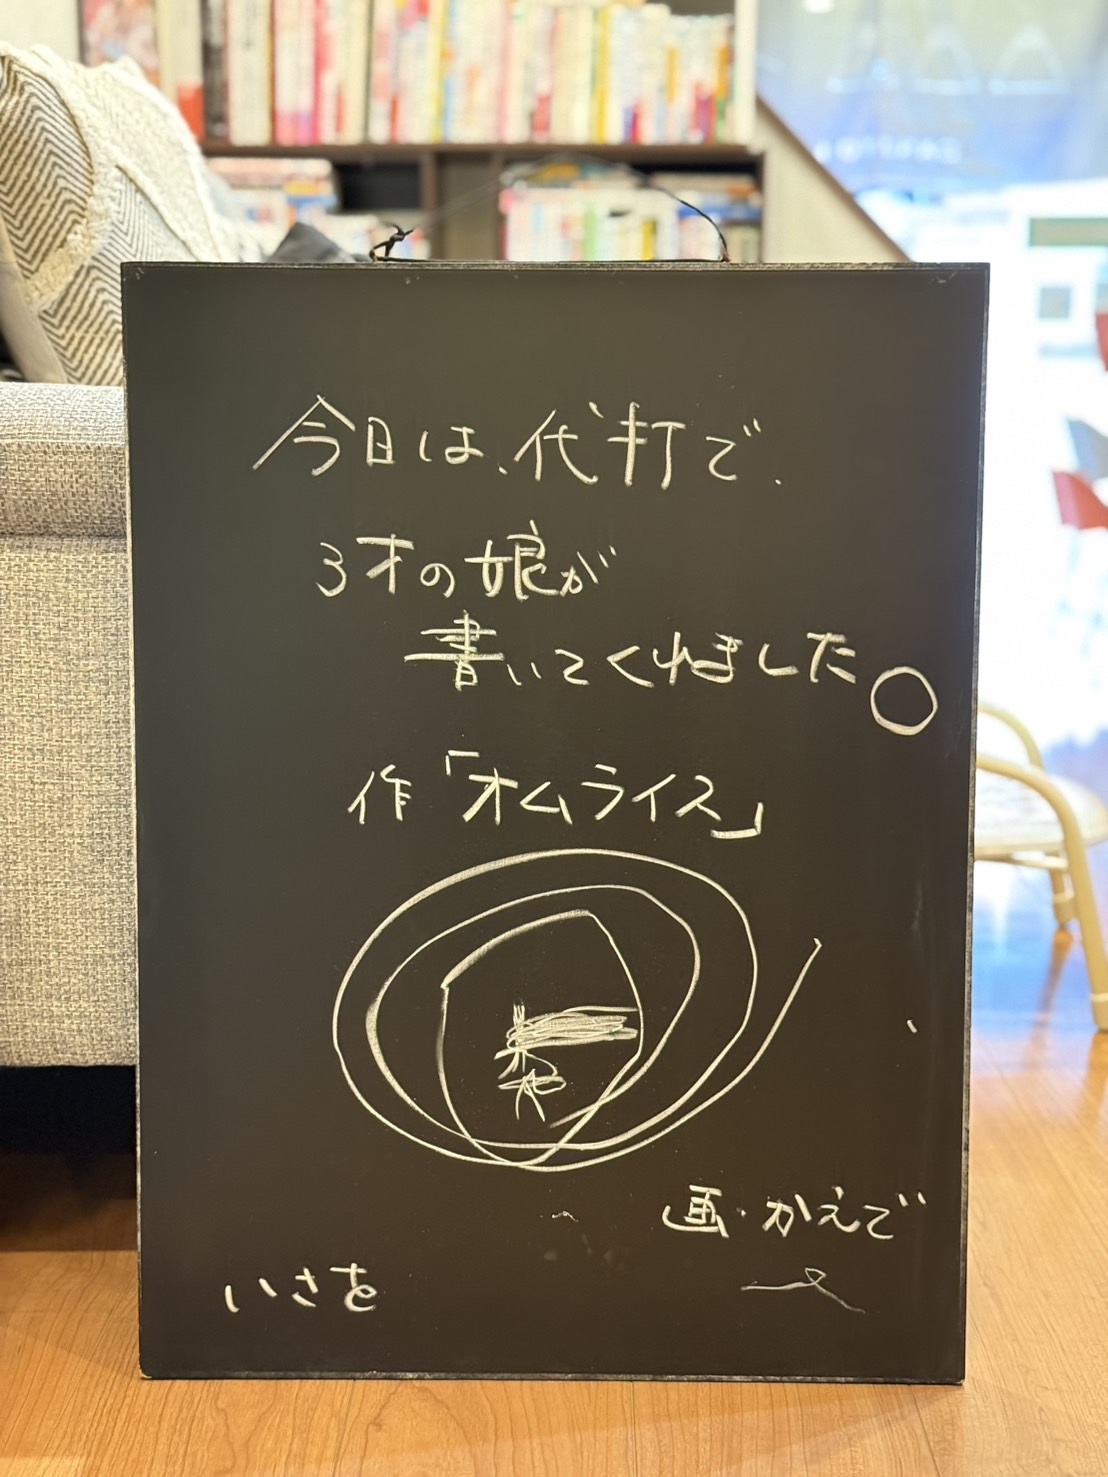 今日は、代打で、
3才の娘が
書いてくれました。
作「オムライス」
画・かえで
いさを